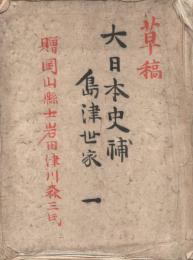 草稿
大日本史補
島津世家 一
贈岡山縣士岩田津川森三氏